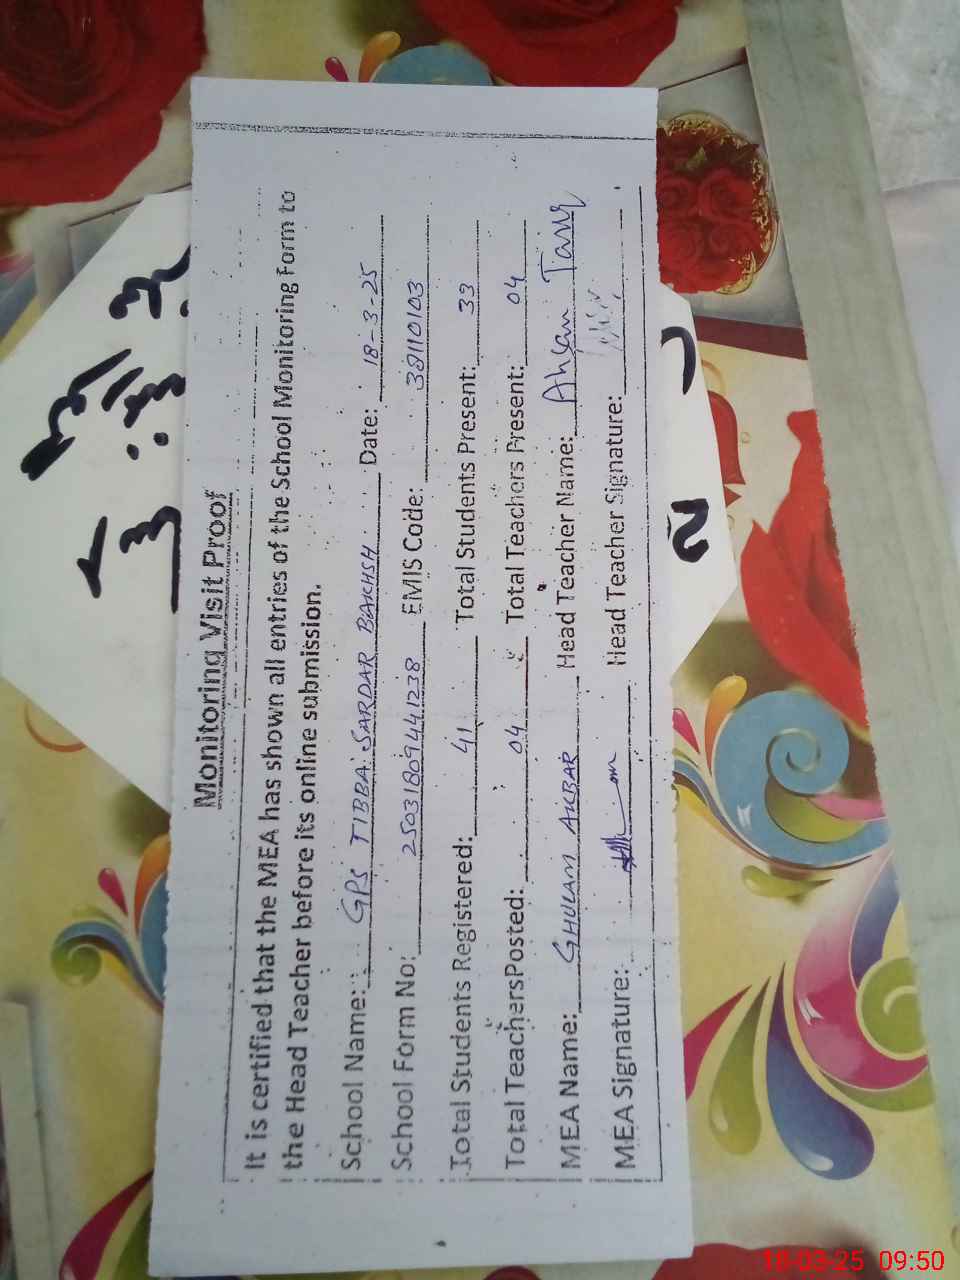 Monitoring Visit Proof
It is certified that the MEA has shown all entries of the School Monitoring Form to
the Head Teacher before its online submission.
School Name: GPS TIBBA SARDAR BAKHSH Date: 18-3-25
School Form No: 25031809441238 EMIS Code: 38110103
Total Students Registered: 41 Total Students Present: 33
Total TeachersPosted: 04 Total Teachers Present: 04
MEA Name: GHULAM AKBAR Head Teacher Name: Ahsan
MEA Signature: Head Teacher Signature:
18-03-25 09:50